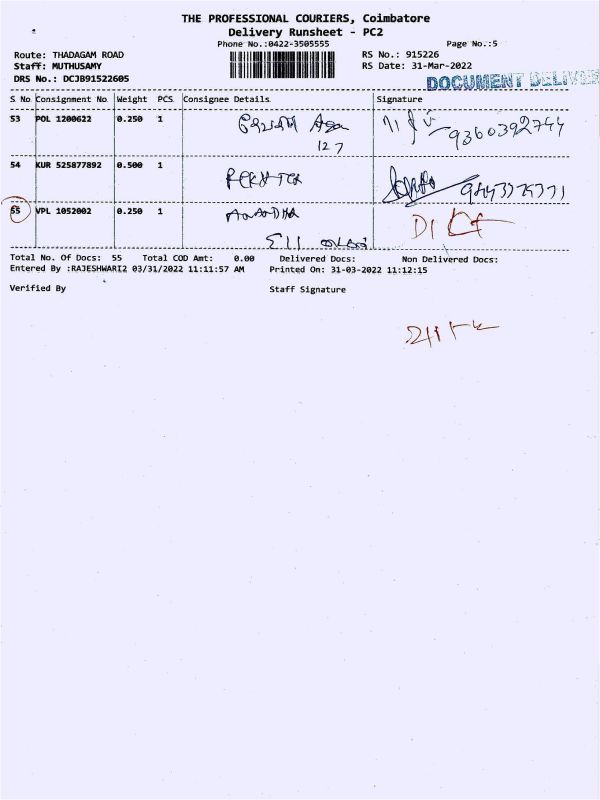 THE PROFESSIONAL COURIERS, Coimbatore
Delivery Runsheet - PC2
Phone No.:0422-3505555
Page No.:5
Route: THADAGAM ROAD
RS No.: 915226
Staff: MUTHUSAMY
RS Date: 31-Mar-2022
DRS No.: DCJB91522605
DOCUMENT DELIVE
S No Consignment No Weight PCS Consignee Details Signature
53 POL 1200622 0.250 1
127 9360392744
54 KUR 525877892 0.500 1
55 VPL 1052002 0.250 1
Total No. Of Docs: 55 Total COD Amt: 0.00 Delivered Docs: Non Delivered Docs:
Entered By :RAJESHWARI2 03/31/2022 11:11:57 AM Printed On: 31-03-2022 11:12:15
Verified By Staff Signature